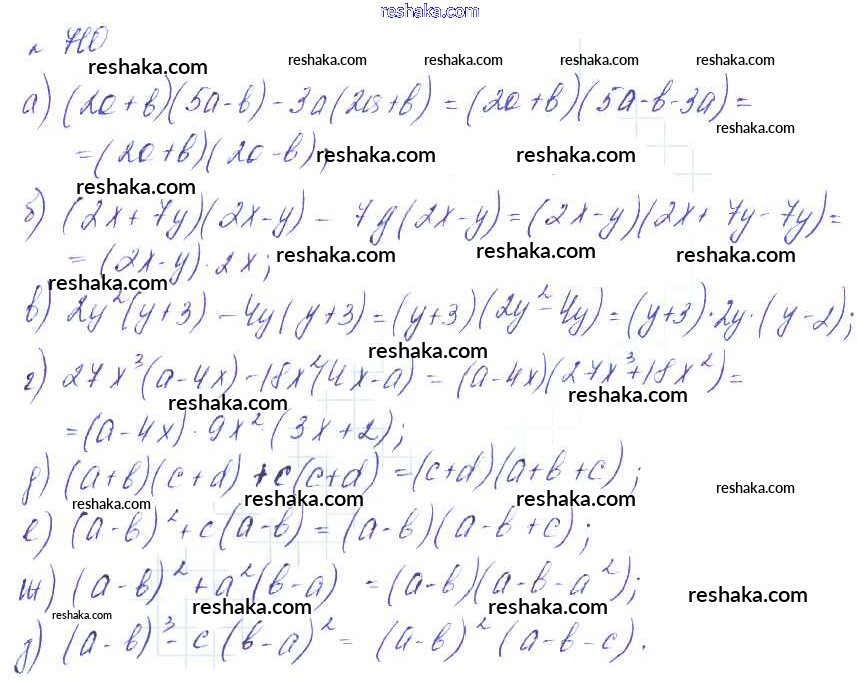 reshaka.com
№ 710
reshaka.com reshaka.com reshaka.com reshaka.com
а) (2a+b)(5a-b)-3a(2a+b) = (2a+b)(5a-b-3a)=
reshaka.com
=(2a+b)(2a-b);
reshaka.com reshaka.com
reshaka.com
б) (2x+7y)(2x-y) - 7y(2x-y)=(2x-y)(2x+7y-7y)=
=(2x-y)·2x;
reshaka.com reshaka.com reshaka.com
reshaka.com
в) 2y²(y+3) - 4y(y+3)=(y+3)(2y²-4y)=(y+3)·2y·(y-2);
reshaka.com
г) 27x³(a-4x)-18x²(4x-a) = (a-4x)(27x³+18x²)=
reshaka.com reshaka.com
=(a-4x)·9x²·(3x+2);
д) (a+b)(c+d)+c(c+d)=(c+d)(a+b+c);
reshaka.com reshaka.com reshaka.com reshaka.com
е) (a-b)²+c(a-b)=(a-b)(a-b+c);
ж) (a-b)²+a²(b-a) =(a-b)(a-b-a²);
reshaka.com reshaka.com reshaka.com reshaka.com
з) (a-b)³-c(b-a)²= (a-b)²(a-b-c).